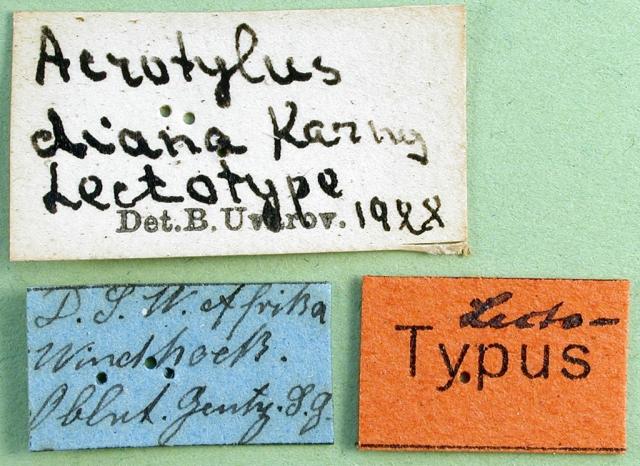 Acrotylus
diana Karny
Lectotype
Det. B. Uvarov. 1928
D. S. W. Afrika
Windhoek.
Oblnt.
Lecto-
Typus